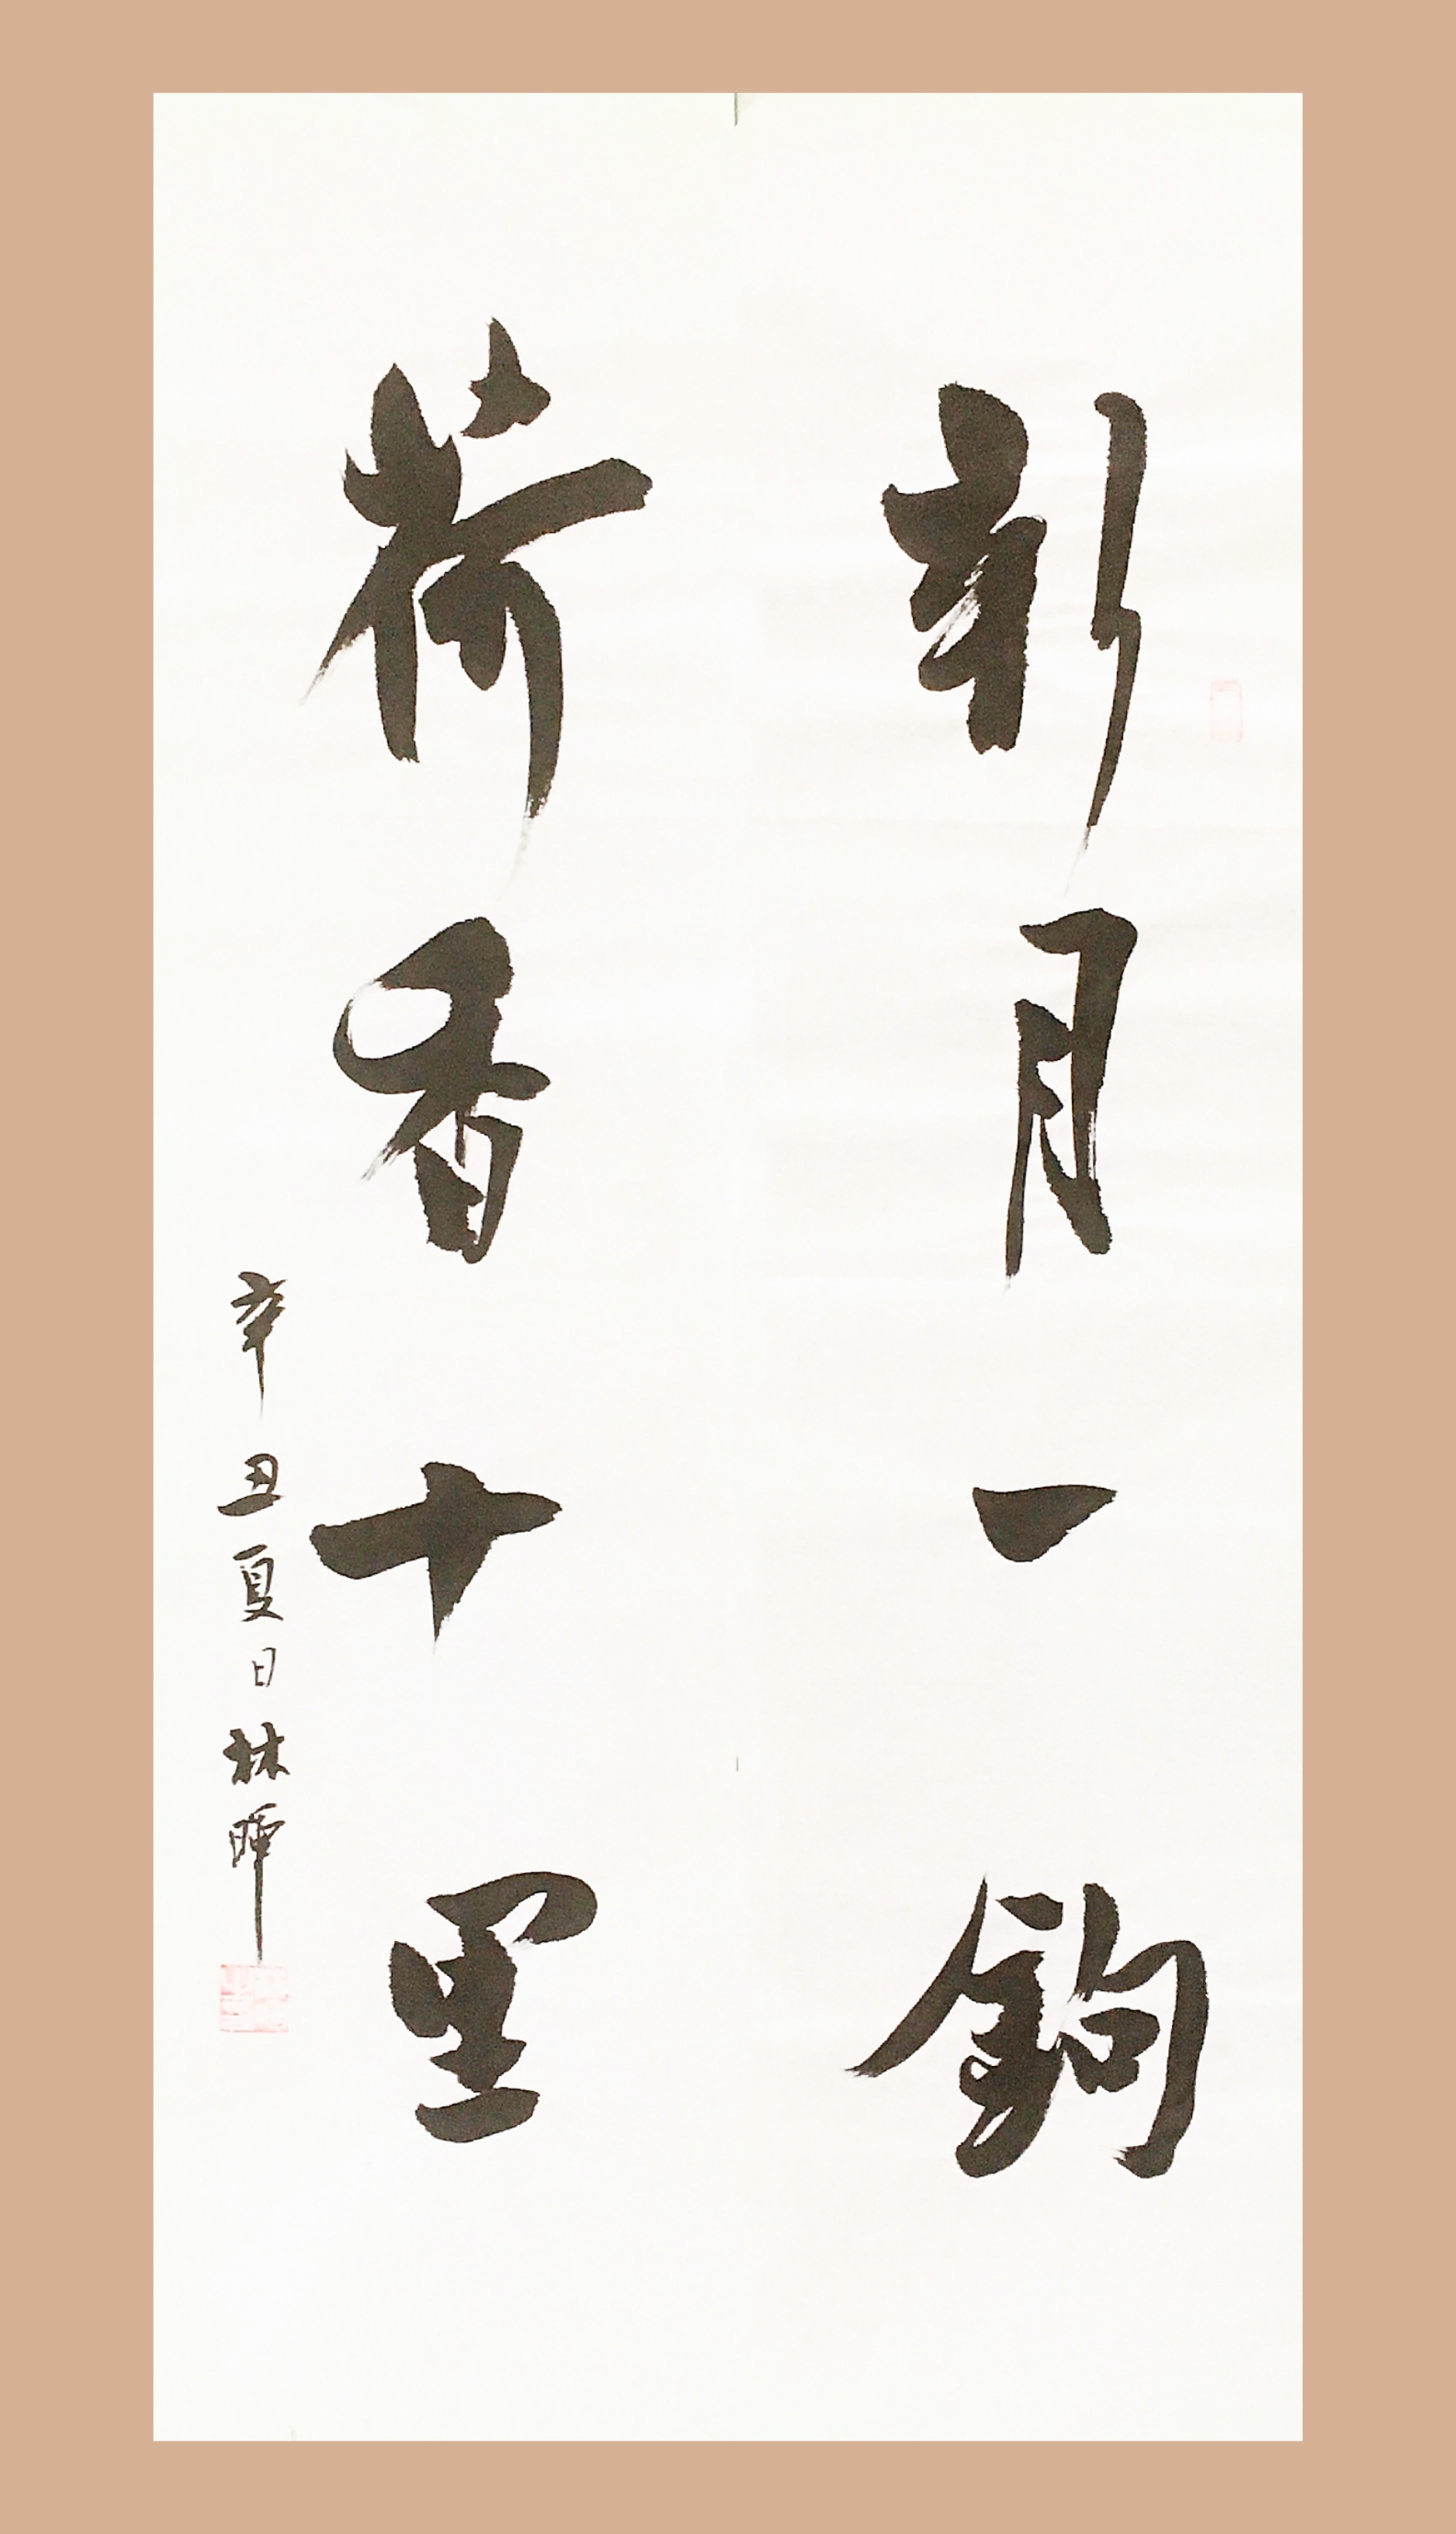 新月一鉤
荷香十里
辛丑夏日林暉